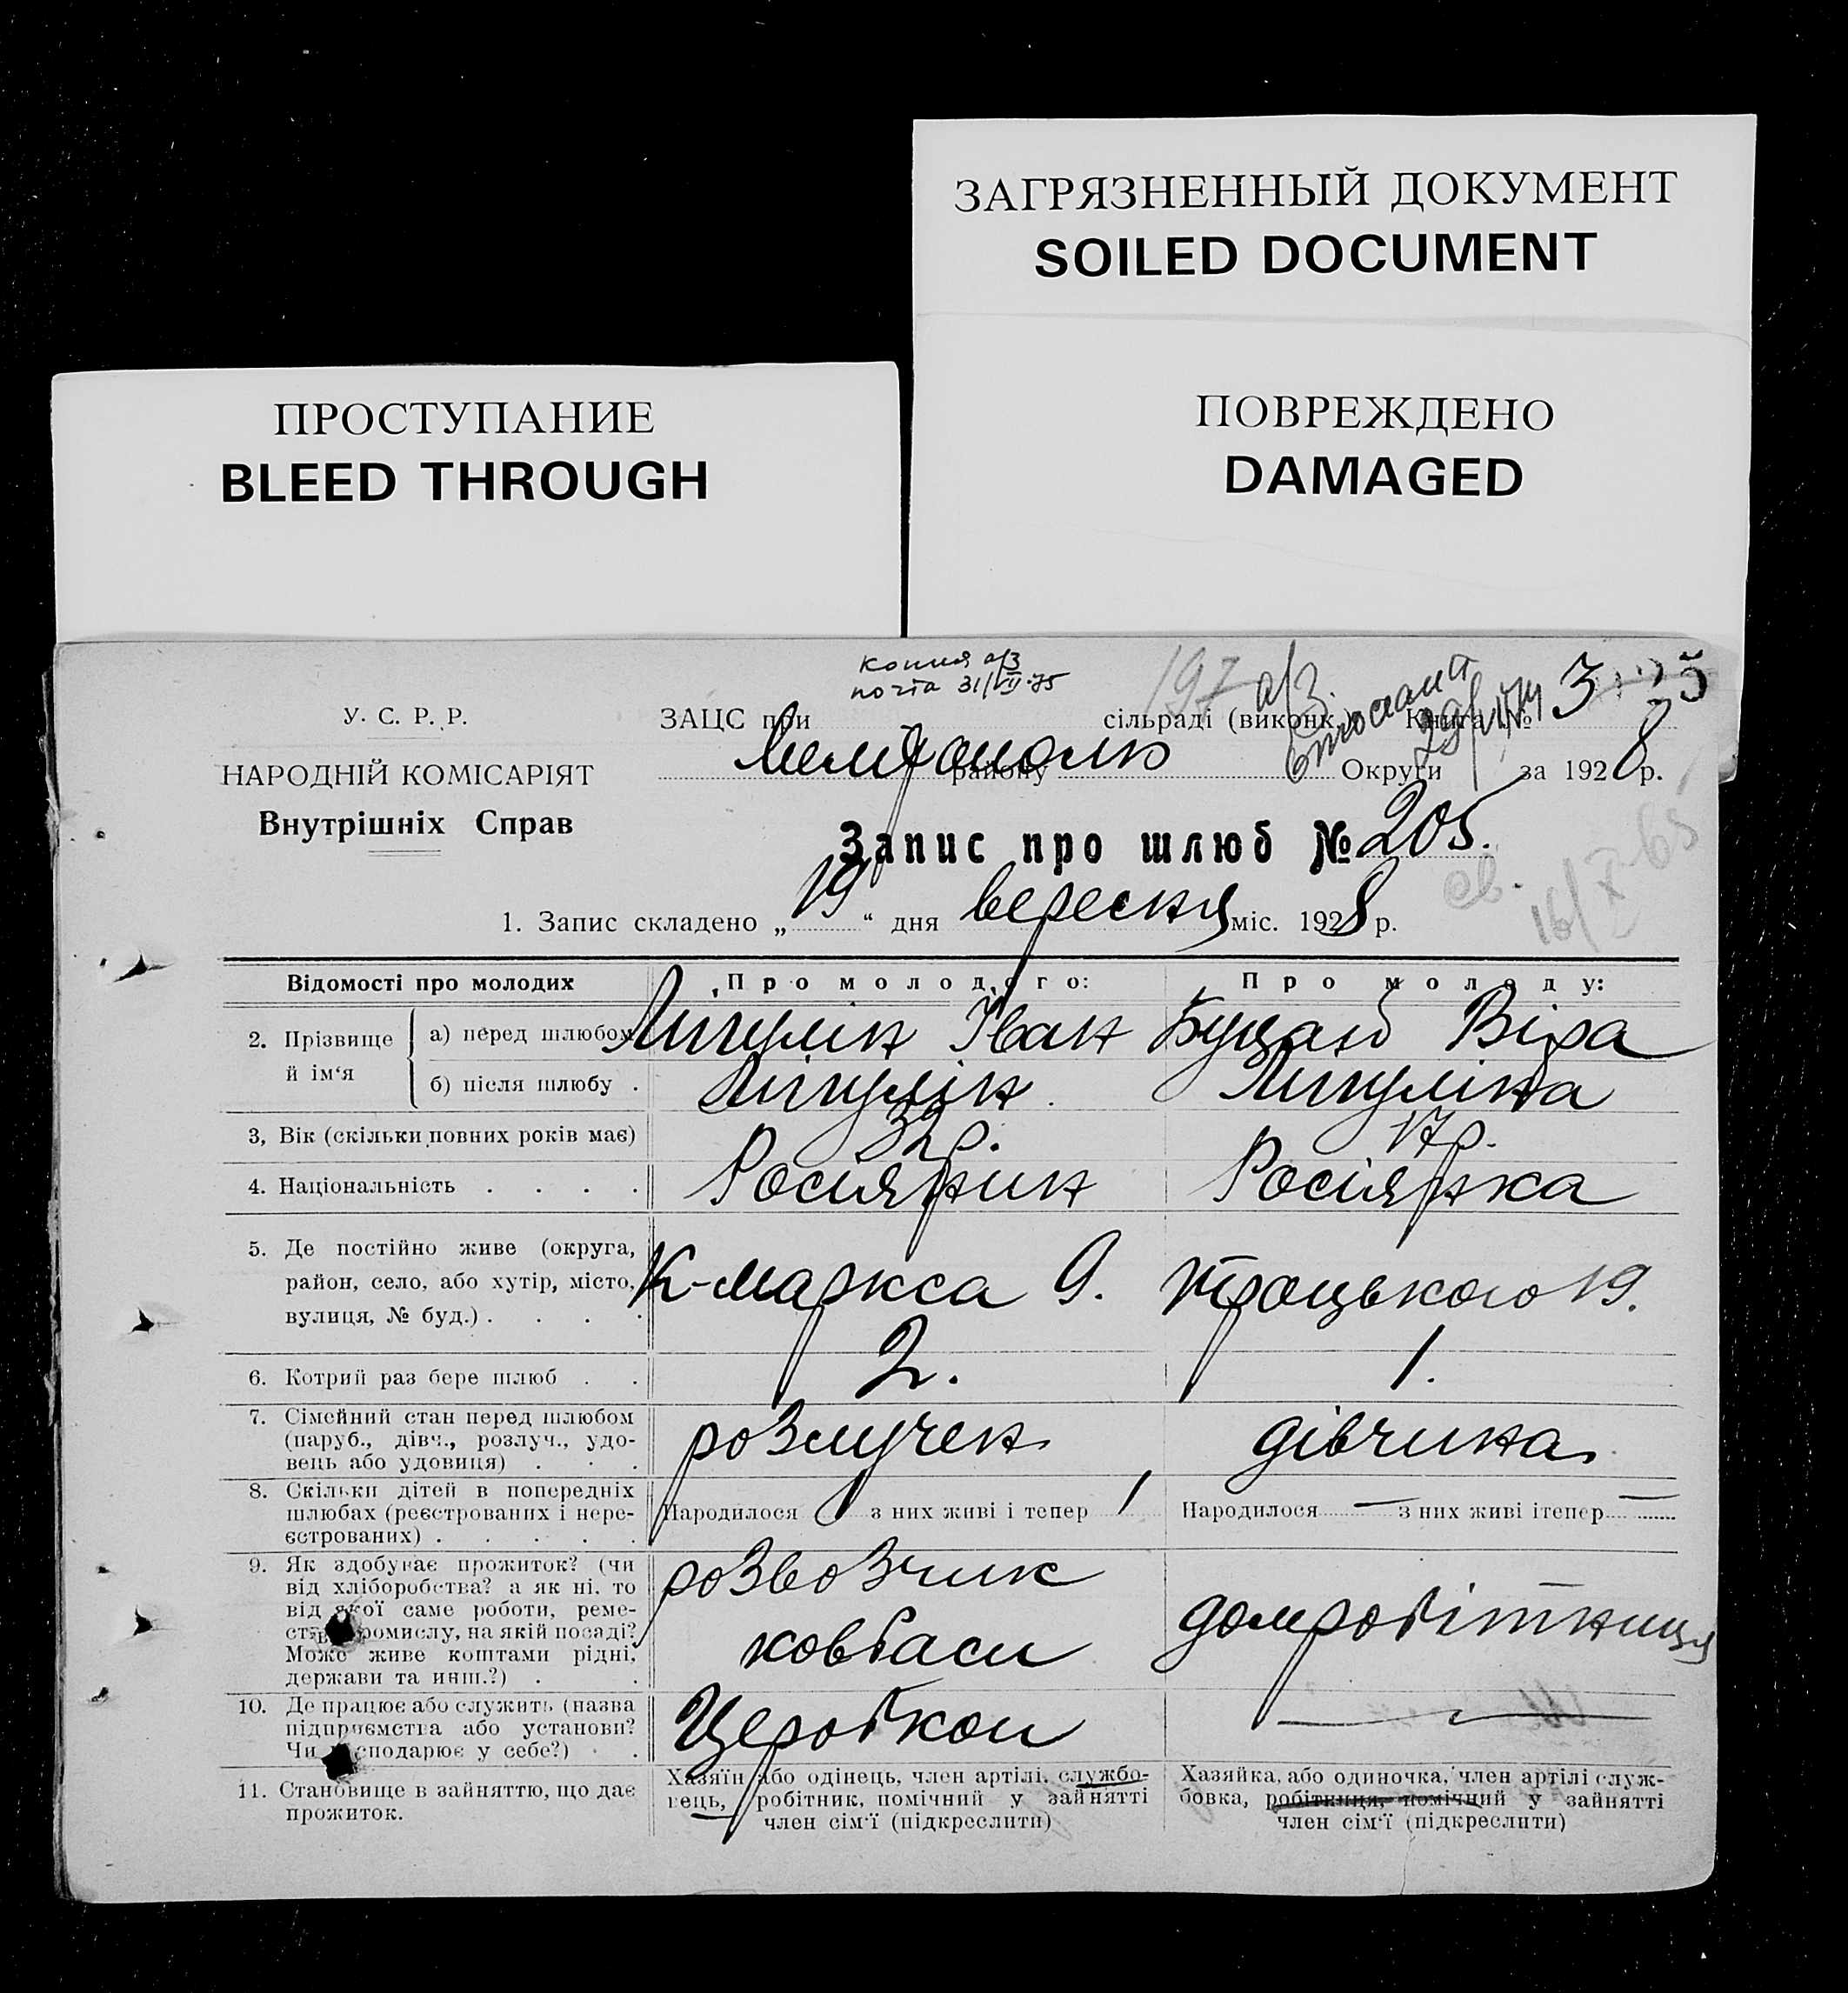 ЗАГРЯЗНЕННЫЙ ДОКУМЕНТ
SOILED DOCUMENT
ПОВРЕЖДЕНО
DAMAGED
ПРОСТУПАНИЕ
BLEED THROUGH
копия а/з
почта 31/VII-75
197 а/з.
У. С. Р. Р.
ЗАЦС при сільраді (виконк.) Книга № 3
НАРОДНІЙ КОМІСАРІЯТ
району Округи за 1928 р.
Внутрішніх Справ
Запис про шлюб № 205.
св. 16/X-65
1. Запис складено „19“ дня вересня міс. 1928 р.
Відомості про молодих Про молодого: Про молоду:
2. Прізвище й ім‘я
а) перед шлюбом Лигулін Іван Віра
б) після шлюбу . Лігулін. Лигуліна
3, Вік (скільки повних років має) 32р. 17р.
4. Національність . . . . Росіянин Росіянка
5. Де постійно живе (округа,
район, село, або хутір, місто,
вулиця, № буд.) . . . . К-Маркса 9. Троцького 19.
6. Котрий раз бере шлюб . . 2. 1.
7. Сімейний стан перед шлюбом
(паруб., дівч., розлуч., удо-
вець або удовиця) . . . розлучен дівчина
8. Скільки дітей в попередніх
шлюбах (реєстрованих і нере-
єстрованих) . . . . .
Народилося 1 з них живі і тепер 1 Народилося — з них живі ітепер —
9. Як здобуває прожиток? (чи
від хліборобства? а як ні. то
від якої саме роботи, реме-
ства промислу, на якій посаді?
Може живе коштами рідні,
держави та инш.?) . .
розвозчик
ковбаси
домробітниця
10. Де працює або служить (назва
підприємства або установи?
Чи господарює у себе?) . .
Церобкоп —
11. Становище в зайняттю, що дає
прожиток.
Хазяїн або одінець, член артілі, службо-
вець, робітник, помічний у зайнятті
член сім‘ї (підкреслити)
Хазяйка, або одиночка, член артілі служ-
бовка, робітниця, помічний у зайнятті
член сім‘ї (підкреслити)